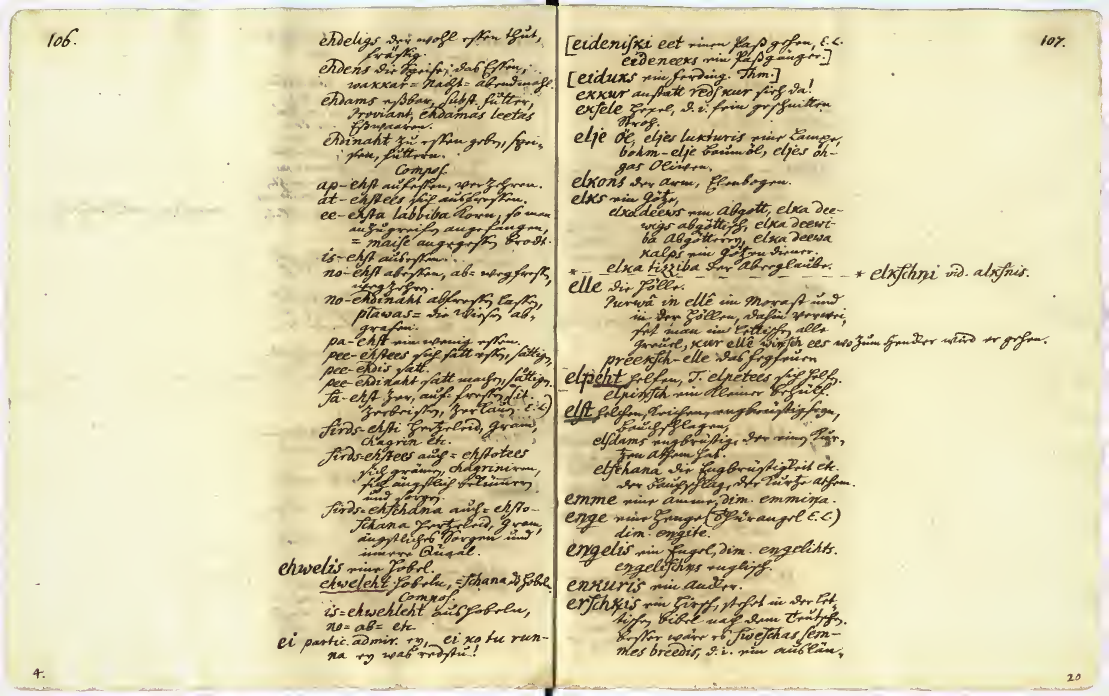 106.
ehdeligs der wohl essen thut,
kräftig.
ehdens die Speise, das Essen,
wakkar= Nacht= abendmahl.
ehdams eßbar, subst. futter,
Proviant, ehdamas leetas
Eßwaaren.
ehdinaht zu essen geben, spei-
sen, füttern.
Compos.
ap-ehst aufessen, verzehren.
at-ehstees sich ausfressen.
ee-ehsta labbiba Korn, so man
anzugreifen angefangen,
= maise angegessen brodt.
is-ehst ausessen.
no-ehst abessen, ab= wegfressen,
wegzehren.
no-ehdinaht abfressen lassen,
plawas= die Wiesen ab,
grasen.
pa-ehst ein wenig essen.
pee-ehstees sich satt essen, sättigen.
pee-ehdis satt.
pee-ehdinaht satt machen, sättigen.
sa-ehst zer, auf fressen,
zerbeissen, E.L.)
sirds-ehsti Hertzeleid, Gram,
chagrin etc.
sirds-ehstees auch= ehstotees
sich grämen, chagriniren,
sich ängstlich bekümmern
und sorgen.
sirds-ehschana auch= ehsto-
schana Hertzeleid, Gram,
ängstliches Sorgen und
innere Quaal.
ehwelis eine Hobel.
ehweleht hobeln, =schana
Compos.
is=ehwehleht aushobeln,
no= ab= etc.
ei partic. admir. ey, ei ko tu run-
na ey was redstu!
4.
[eideniski eet einen Paß gehen, E.L.
eideneeks ein Paßgänger.]
[eiduks ein ferding. Thm.]
107.
ekkur anstatt reds kur sieh da!
eksele Hexel, d. i. fein geschnitten
Stroh.
elje öl, eljes lukturis eine Lampe,
bohm-elje baumöl, eljes oh-
gas Oliven.
elkons der Arm, Elenbogen.
elks ein Götze,
elkadeews ein Abgott, elka dee-
wigs abgöttisch, elka deewi-
ba Abgötterey, elka deewa
kalps ein Götzendiener.
elka tizziba der Aberglaube.
* elkschni vid. alksnis.
elle die Hölle.
Purwâ in ellê im Morast und
in der Höllen, dahin
man im Lettischen alle
Greuel, kur elle winsch ees wo zum Hencker wird er gehen.
preeksch-elle das Fegfeuer
elpeht helfen, T. elpetees sich helf.
elpinsch ein kleiner
elst keichen, engbrüstig seyn,
bauchschlagen,
elsdams engbrüstig, der einen kur,
tzen Athem hat.
elschana die Engbrüstigkeit etc.
der Bauchschlag, der kurtze Athem.
emme eine Amme, dim. emmina.
enge eine Henge (Thürangel E.L.)
dim. engite.
engelis ein Engel, dim. engelihts.
engelischks englisch.
enkuris ein Ancker.
erschkis ein Hirsch, stehet in der Let-
tischen Bibel nach dem Teutschen.
besser wäre es, sweschas sem-
mes breedis, d. i. ein auslän,
20